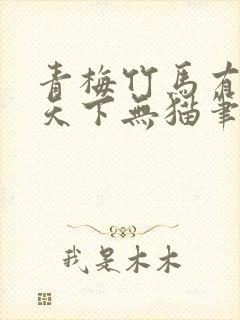 青梅竹馬有
天下無猫筆
我是木木